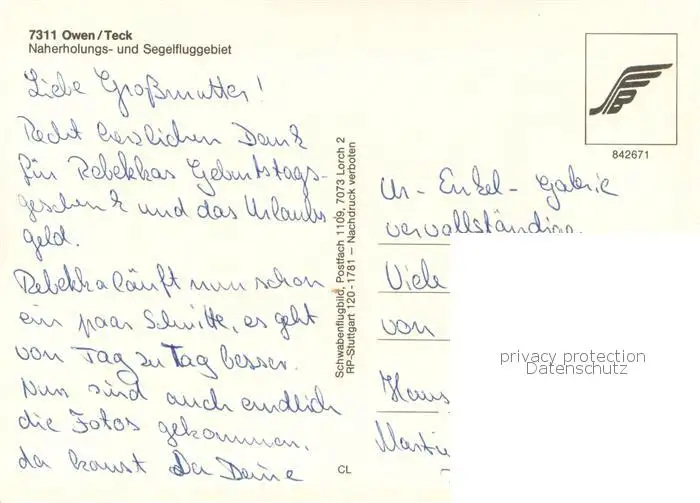 7311 Owen/Teck
Naherholungs- und Segelfluggebiet
Liebe Großmutter!
Recht herzlichen Dank
für Rebekkas Geburtstags-
geschenk und das Urlaubs
geld.
Rebekka läuft nun schon
ein paar Schritte, es geht
von Tag zu Tag besser.
Nun sind auch endlich
die Fotos gekommen,
da kannst Du Deine
Schwabenflugbild, Postfach 1109, 7073 Lorch 2
RP-Stuttgart 120-1781 – Nachdruck verboten
CL
842671
Ur-Enkel-Galerie
vervollständigen
Viele
von
Hans
Martin
privacy protection
Datenschutz